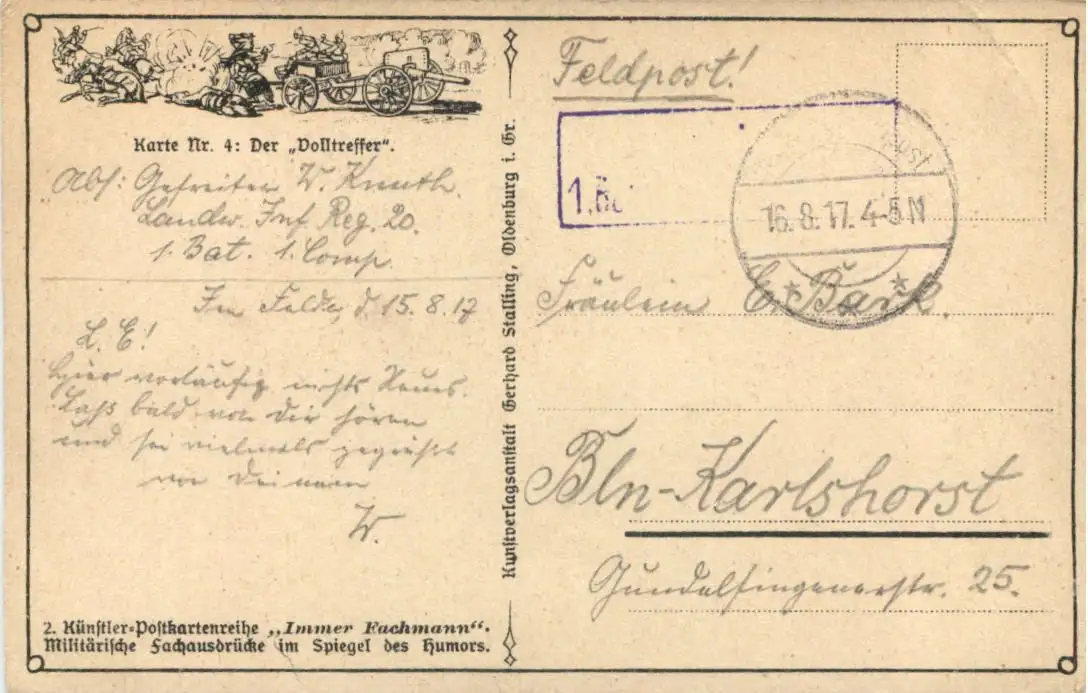 Karte Nr. 4: Der „Volltreffer“.
Abs: Gefreiter W. Knuth.
Landw. Inf. Reg. 20.
1. Bat. 1. Comp.
Im Felde, d. 15.8.17
L. E!
Hier vorläufig nichts Neues.
Laß bald von Dir hören
und sei vielmals gegrüßt
von Deinem
W.
2. Künstler=Postkartenreihe „Immer Fachmann“.
Militärische Fachausdrücke im Spiegel des Humors.
Kunstverlagsanstalt Gerhard Stalling, Oldenburg i. Gr.
Feldpost!
1. Ba
16.8.17. 4-5 N
Fräulein E. Bark.
Bln-Karlshorst
Gundelfingenerstr. 25.